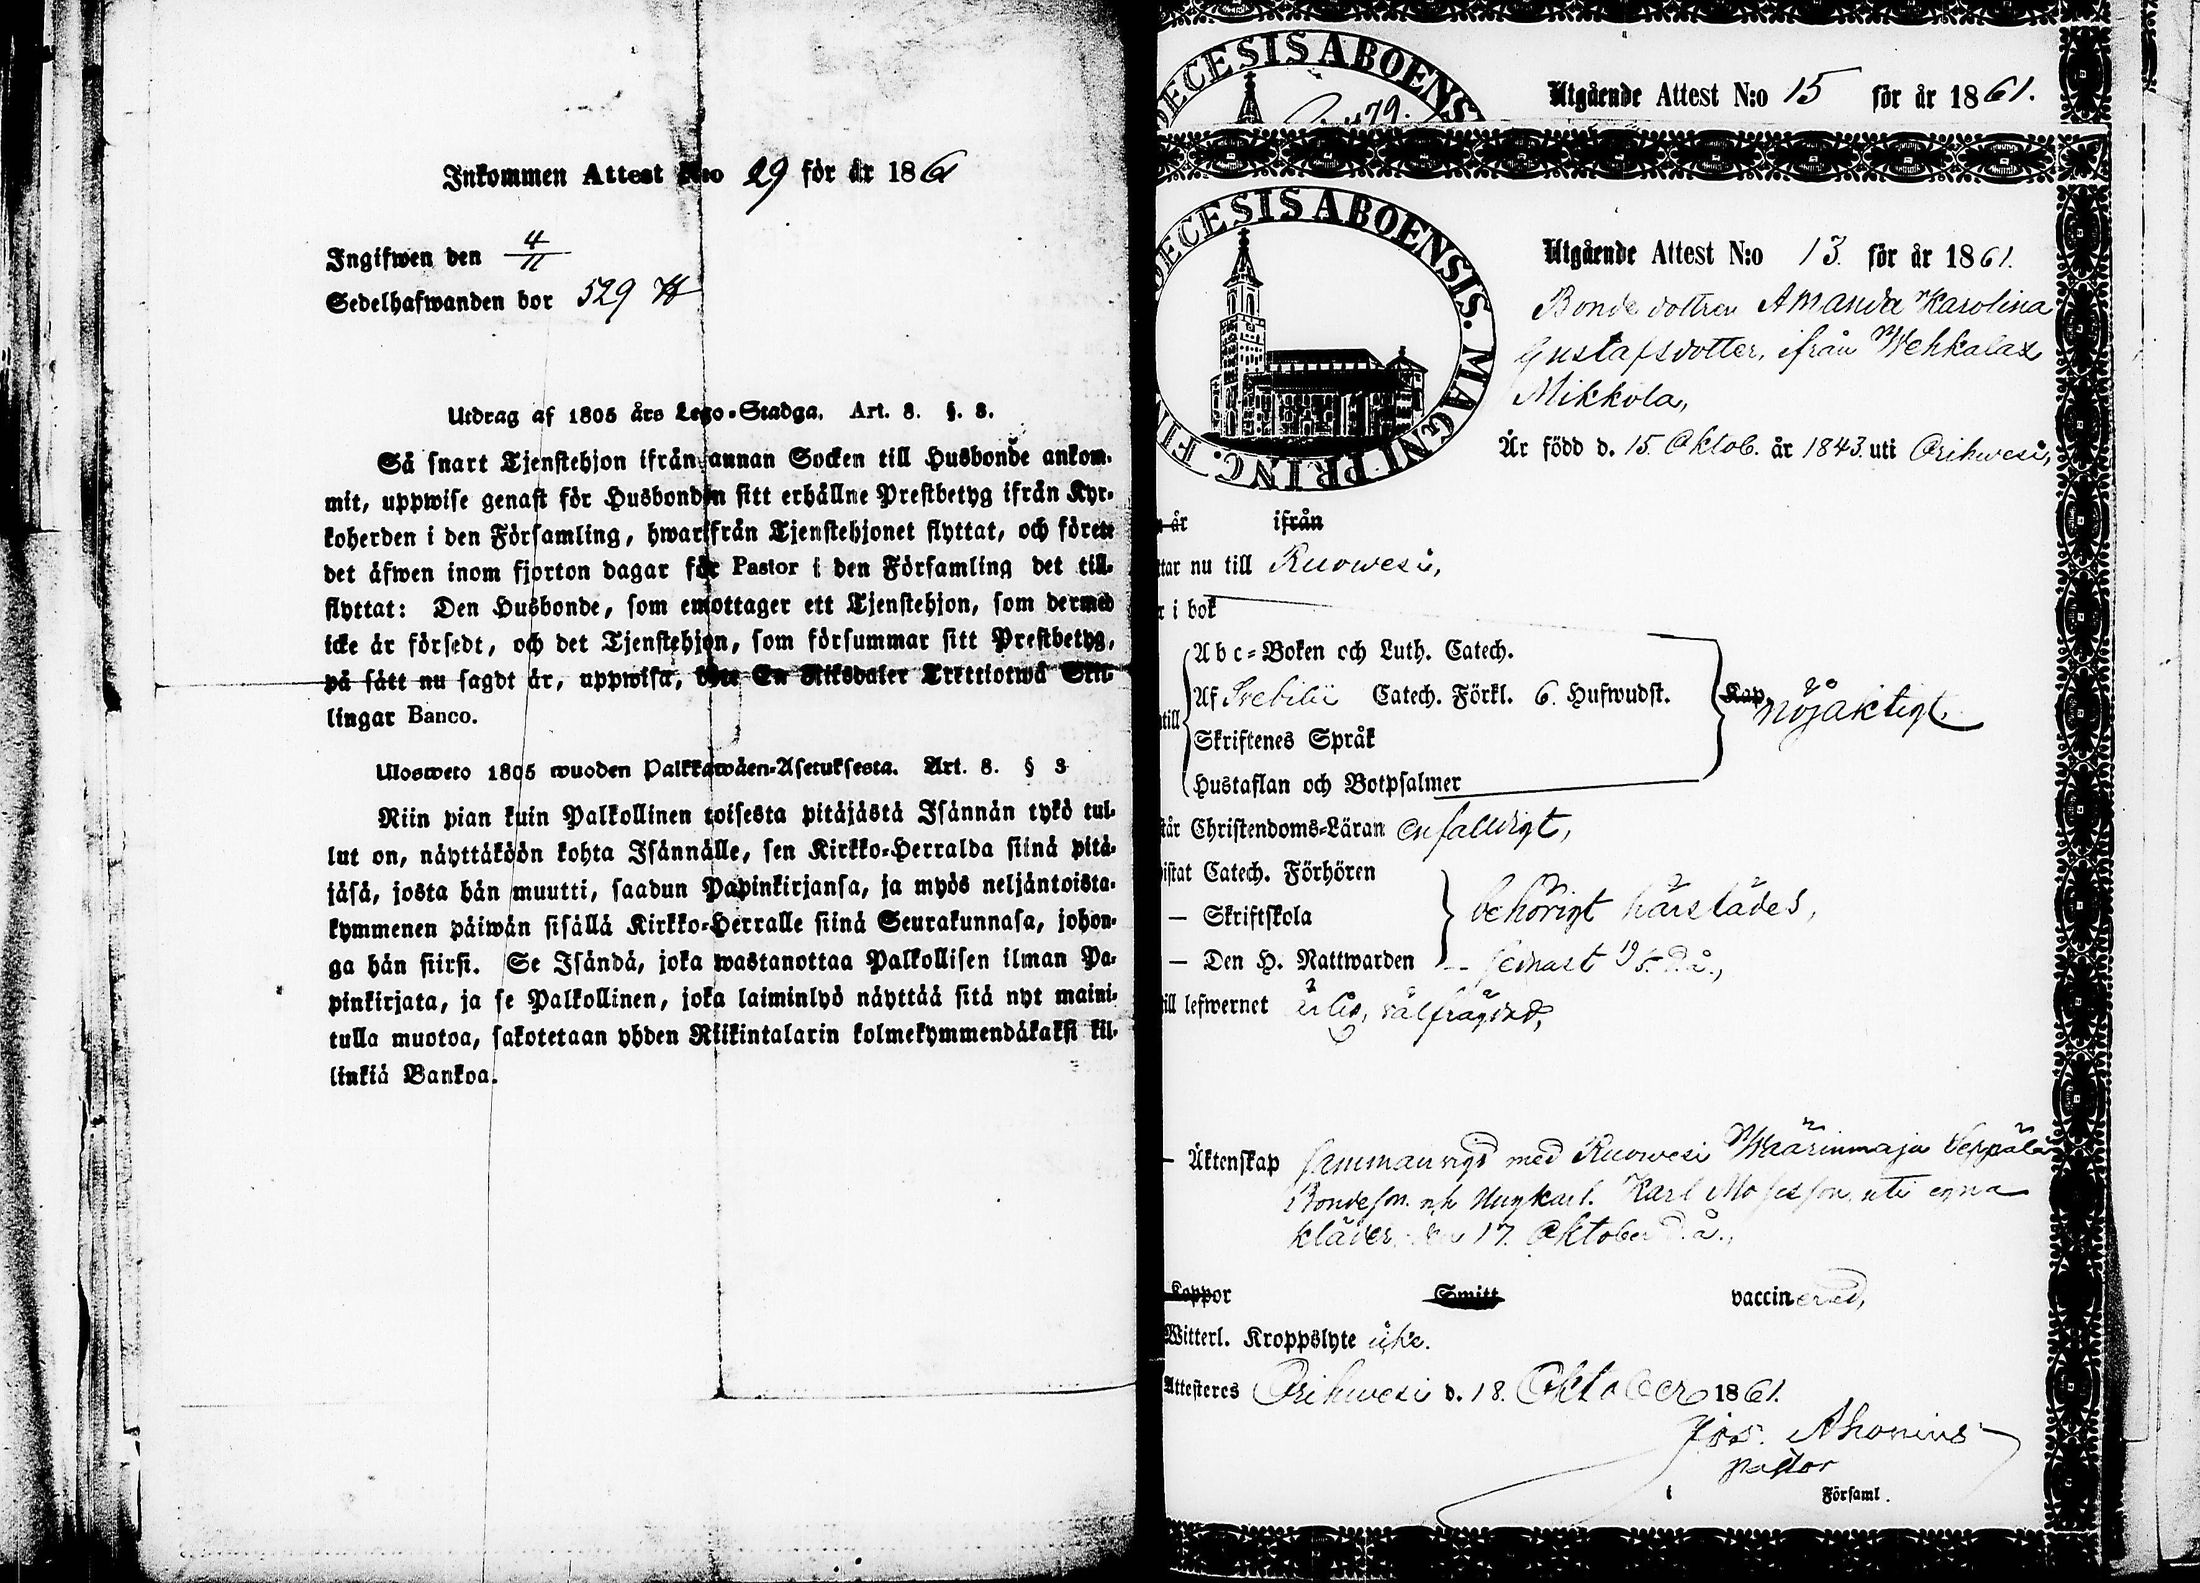 Inkommen Attest N:o 29 för år 1861
Ingifwen den 4/11
Sedelhafwanden bor 529
Utdrag af 1805 års Lego-Stadga. Art. 8. §. 3.
Så snart Tjenstehjon ifrån annan Socken till Husbonde ankom-
mit, uppwise genast för Husbonden sitt erhållne Prestbetyg ifrån Kyr-
koherden i den Församling, hwarifrån Tjenstehjonet flyttat, och förete
det äfwen inom fjorton dagar för Pastor i den Församling det till-
flyttat: Den Husbonde, som emottager ett Tjenstehjon, som dermed
icke är försedt, och det Tjenstehjon, som försummar sitt Prestbetyg,
på sätt nu sagdt är, uppwisa, böte En Riksdaler Trettiotwå Skil-
lingar Banco.
Ulosweto 1805 wuoden Palkkawäen-Asetuksesta. Art. 8. § 3
Niin pian kuin Palkollinen toisesta pitäjästä Isännän tykö tul-
lut on, näyttäköön kohta Isännälle, sen Kirkko-Herralda siinä pitä-
jäsä, josta hän muutti, saadun Papinkirjansa, ja myös neljäntoista-
kymmenen päiwän sisällä Kirkko-Herralle siinä Seurakunnasa, johon-
ga hän siirsi. Se Isändä, joka wastanottaa Palkollisen ilman Pa-
pinkirjata, ja se Palkollinen, joka laiminlyö näyttää sitä nyt maini-
tulla muotoa, sakotetaan yhden Riikintalarin kolmekymmendäkaksi kil-
linkiä Bankoa.
ECESIS ABOENS
79.
Utgående Attest N:o 15 för år 1861.
OECESIS ABOENSIS. MAGNI PRINC. FI
Utgående Attest N:o 13. för år 1861.
Bondedottren Amanda Karolina
Gustafsdotter, ifrån Wehkalax
Mikkola,
Är född d. 15. Oktob. år 1843. uti Orihwesi,
år ifrån
tar nu till Ruowesi,
i bok
Abc-Boken och Luth. Catech.
till Af Svebilii Catech. Förkl. 6. Hufwudst. Kap nöjaktigt.
Skriftenes Språk
Hustaflan och Botpsalmer
tår Christendoms-Läran enfalldigt,
istat Catech. Förhören
— Skriftskola behörigt härstädes,
— Den H. Nattwarden senast 19/5. d.å.,
ill lefwernet ärlig, välfrägdad,
— Äktenskap sammanvigd med Ruowesi Wäärinmaja Seppälä
Bondeson. och Ungkarl. Karl Mosesson, uti egna
kläder, den 17. Oktober d.å.,
Koppor Smitt vaccinerad,
Witterl. Kroppslyte icke.
Attesteres Orihwesi d. 18. Oktober 1861.
Jos. Ahonius
pastor
i Församl.